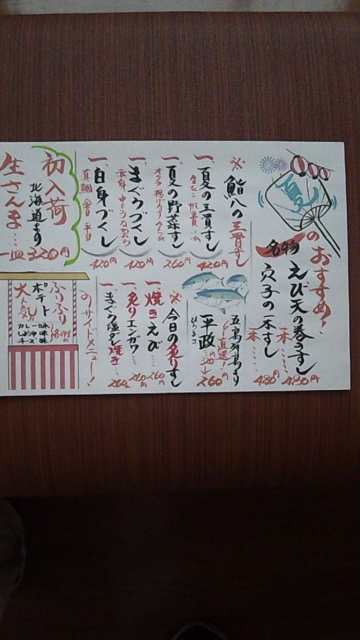 夏のおすすめ!
名物 えび天の巻きすし 一本… 480円
穴子の一本すし 一本… 480円
※ 鮨八の三貫すし
一、夏の三貫すし 420円
一、夏の野菜すし 260円
一、まぐろづくし 420円
一、白身づくし 420円
五島列島より直送!
平政 260円
※ 今日の炙りすし
一、焼きえび… 260円
一、炙りエンガワ… 260円
一、まぐろ塩たれ焼き… 260円
初入荷
北海道より
生さんま…
一皿 320円
のサイドメニュー!
ふりふり
ポテト
大人気
カレー味
チーズ味